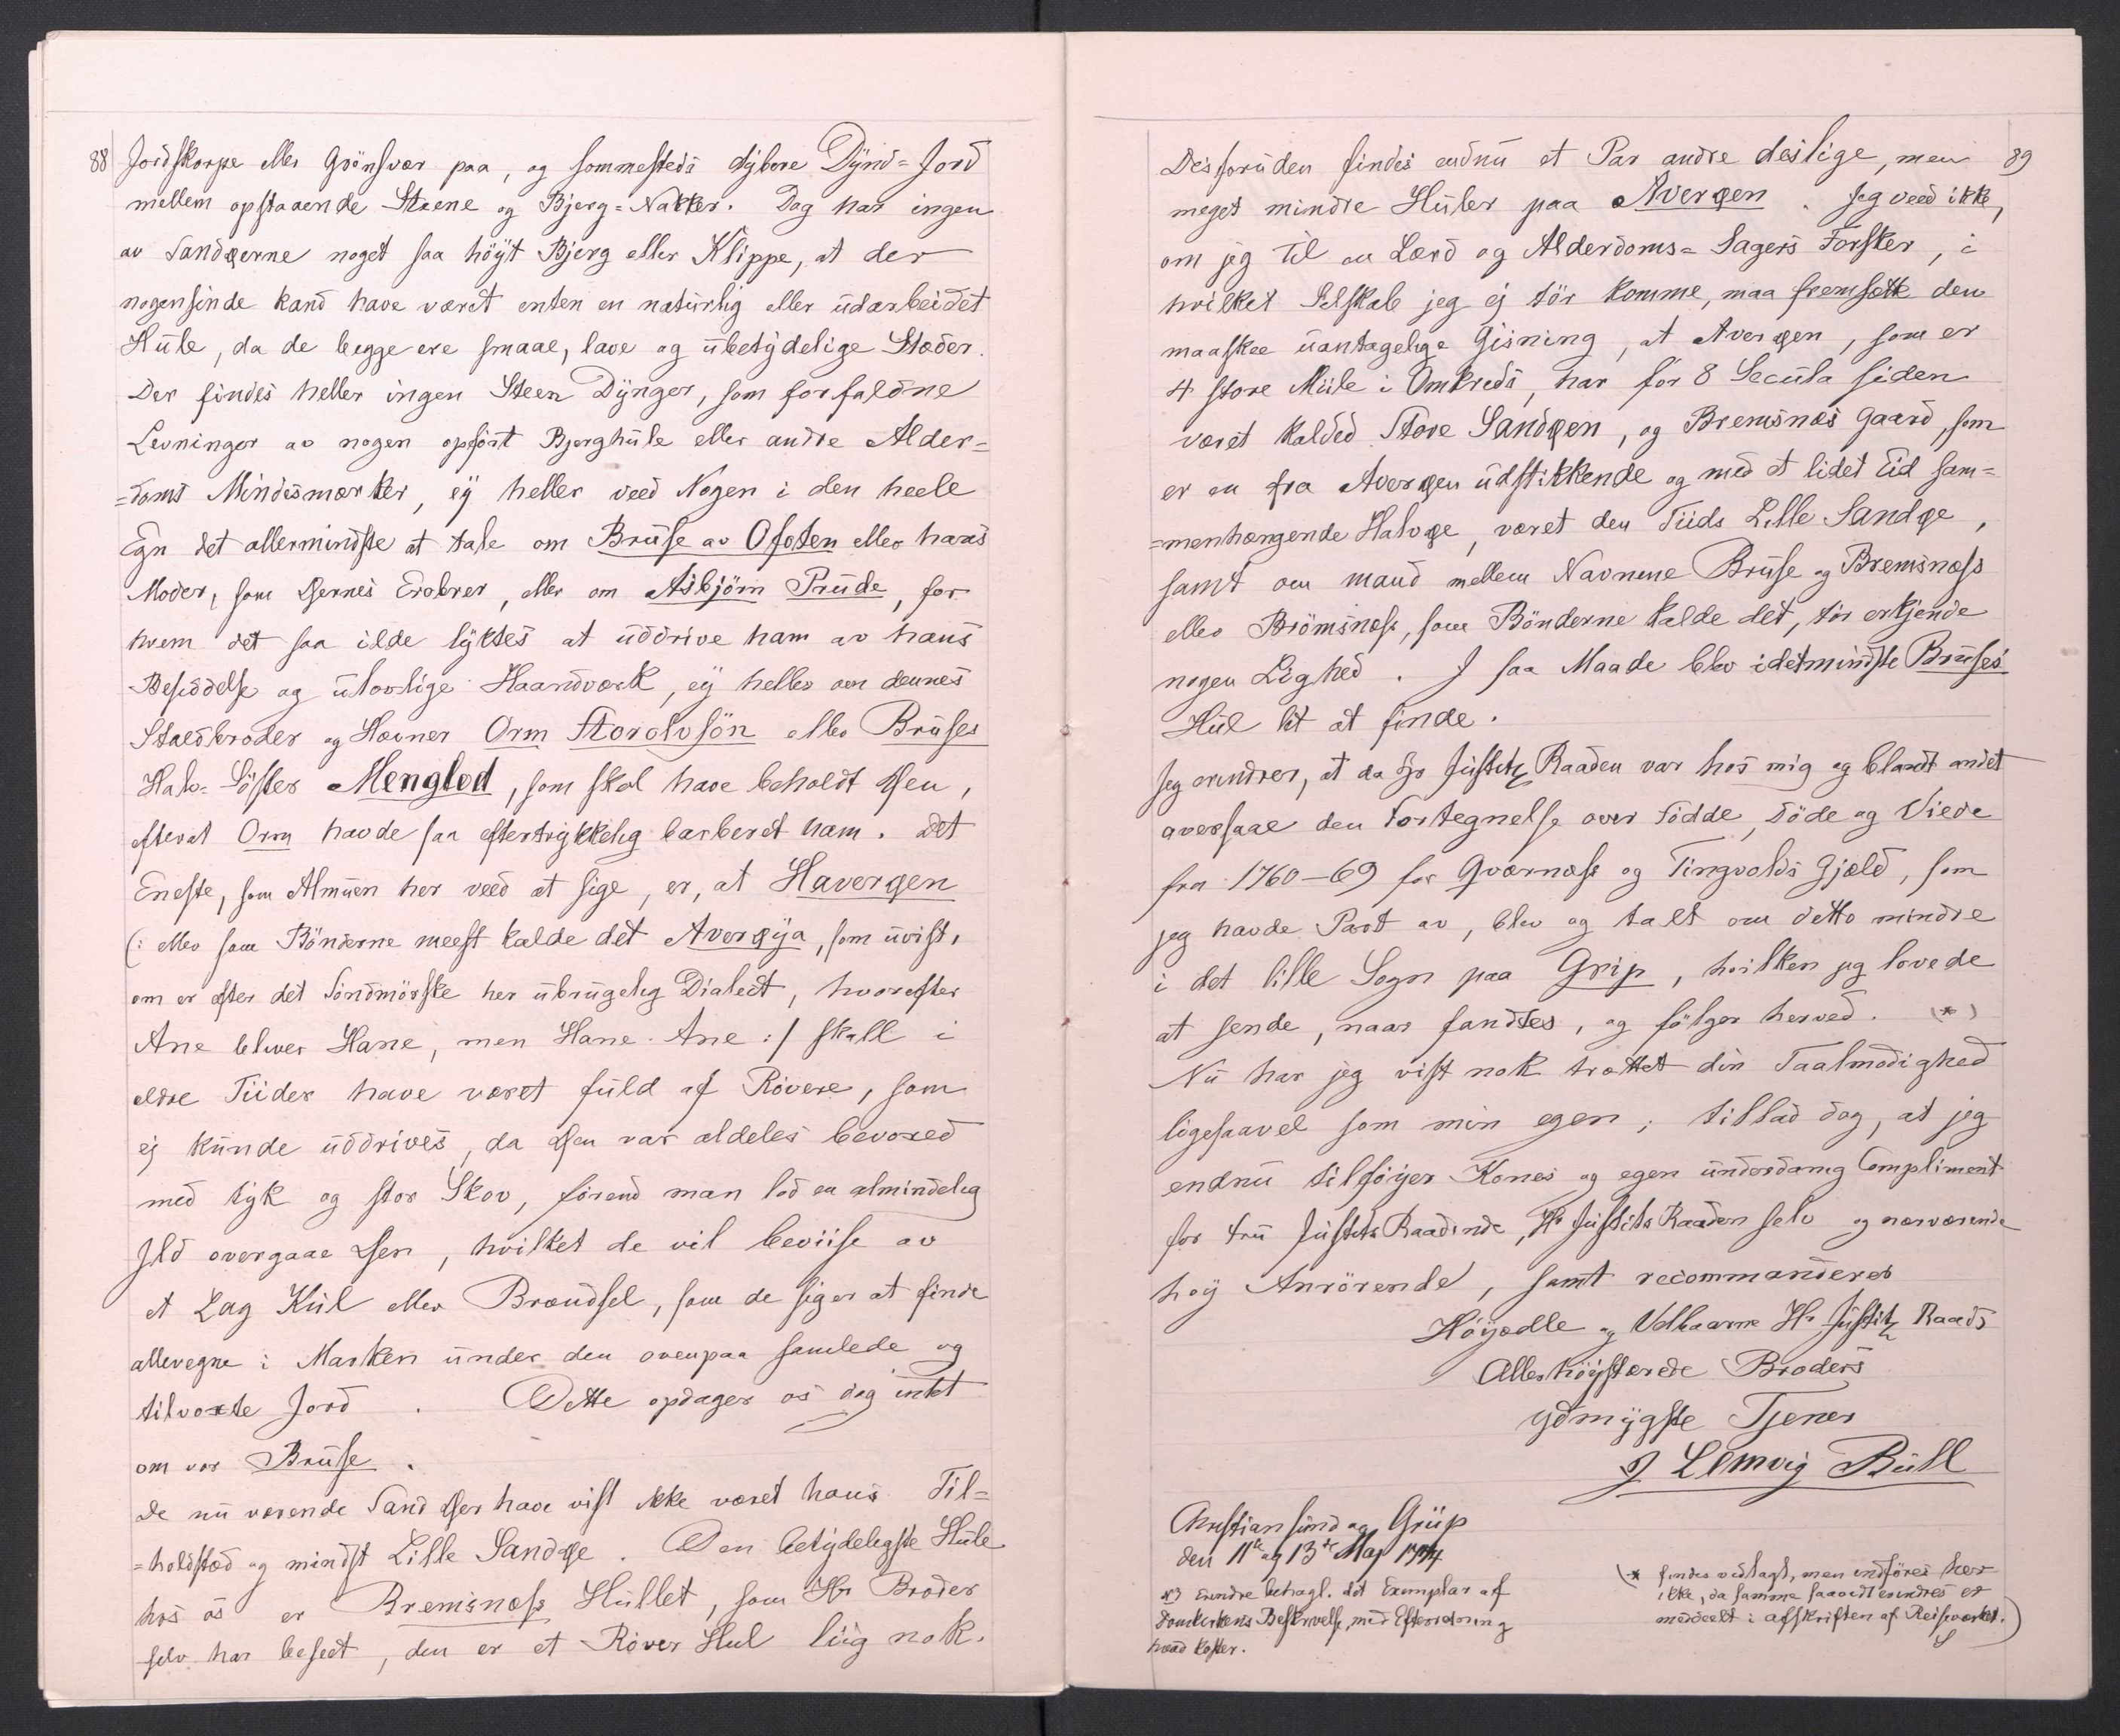 88
Jordskorpe eller Grönsvær paa, og sommesteds dybere Dynd=Jord
mellem opstaaende Steene og Bjerg=Nakker. Dog har ingen
av Sandøerne noget saa höyt Bjerg eller Klippe, at der
nogensinde kand have været enten en naturlig eller udarbeidet
Hule, da de begge ere smaae, lave og ubetydelige Stæder.
Der findes heller ingen Steen Dynger, som forfaldne
Levninger av nogen opført Bjerghule eller andre Alder=
=doms Mindesmærker, ey heller veed Nogen i den heele
Egn det allermindste at tale om Bruse av Ofoten eller hans
Moder, som Øernes Erobrer, eller om Asbjörn Prude, for
hvem det saa ilde lyktes at uddrive ham av hans
Besiddelse og ulovlige Haandværk, ey heller om dennes
Staldbroder og Hevner Orm Storolvsön eller Bruses
Halv=Söster Menglod, som skal have beholdt Øen,
efterat Orm havde saa eftertrykkelig barberet ham. Det
Eneste, som Almuen her veed at sige, er, at Haverøen
(: eller som Bönderne meest kalde det Averøya, som uvist,
om er efter det Söndmörske her ubrugelig Dialect, hvorefter
Ane bliver Hane, men Hane Ane :/ skall i
eldre Tiider have været fuld af Røvere, som
ej kunde uddrives, da Øen var aldeles bevoxed
med tyk og stor Skov, förend man lod en almindelig
Ild overgaae Øen, hvilket de vil beviise av
et Lag Kul eller Brændsel, som de siger at finde
allevegne i Marken under den ovenpaa samlede og
tilvoxte Jord. Dette opdager os dog intet
om vor Bruse.
De nu værende Sand Øer have vist ikke været hans Til=
=holdstæd og mindst Lille Sandøe. Den betydeligste Hule
hos os er Bremsnæss Hullet, som Hr Broder
selv har beseet, den er et Røver Hul liig nok.
89
Desforuden findes endnu et Par andre deslige, men
meget mindre Huler paa Averøen. Jeg veed ikke,
om jeg til en Lærd og Alderdoms=Sagers Forsker, i
hvilket Selskab jeg ej tör komme, maa fremsette den
maaskee uantagelige Gisning, at Averøen, som er
4 store Miile i Omkreds, har for 8 Secula siden
været kalded Store Sandøen, og Bremsnæs Gaard, som
er en fra Averøen udstikkende og med et lidet Eid sam=
=menhængende Halvøe, været den Tiids Lille Sandøe,
samt om mand mellem Navnene Bruse og Bremsnæss
eller Brömsnæss, som Bönderne kalde det, tör erkjende
nogen Lighed. I saa Maade blev idetmindste Bruses
Hul let at finde.
Jeg erindrer, at da Hr Justitz Raaden var hos mig og blandt andet
oversaae den Fortegnelse over Födde, Döde og Viede
fra 1760-69 for Qværnæss og Tingvolds Gjæld, som
jeg havde Part av, blev og talt om detto mindre
i det lille Sogn paa Grip, hvilken jeg lovede
at sende, naar fandtes, og fölger herved. (*)
Nu har jeg vist nok trættet din Taalmodighed
ligesaavel som min egen; tillad dog, at jeg
endnu tilföyer Kones og egen underdanig Compliment
for Fru JustitsRaadinde, Hr JustitsRaaden selv og nærværende
høy Anrörende, samt recommanderes
Höyædle og Velbaarne Hr Justitz Raads
Allerhöystærede Broders
ydmygste Tjener
J Lemvig Bull
Christiansund og Griip
den 11te og 13de Maj 1774
*) Erindre behagl. det Exemplar af
Domkirkens Beskrivelse, med Efterretning
hvad koster.
(* findes vedlagt, men indföres her
ikke, da samme saavidt erindres er
meddeelt i afskriften af Reiseværket.)
S